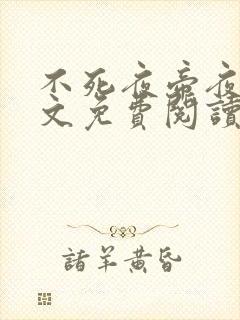 不死夜帝夜
文免費閱讀
諸羊黃昏